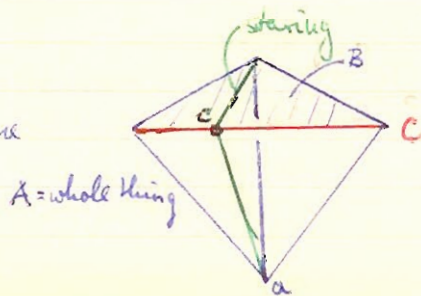 string
B
c
C
A = whole thing
a